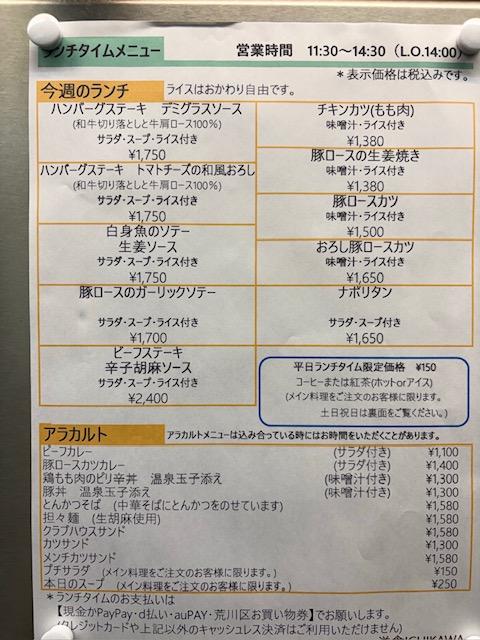 ランチタイムメニュー 営業時間 11:30～14:30（L.O.14:00）
＊表示価格は税込みです。
今週のランチ ライスはおかわり自由です。
ハンバーグステーキ デミグラスソース
(和牛切り落としと牛肩ロース100％)
サラダ・スープ・ライス付き
¥1,750
ハンバーグステーキ トマトチーズの和風おろし
(和牛切り落としと牛肩ロース100％)
サラダ・スープ・ライス付き
¥1,750
白身魚のソテー
生姜ソース
サラダ・スープ・ライス付き
¥1,750
豚ロースのガーリックソテー
サラダ・スープ・ライス付き
¥1,700
ビーフステーキ
辛子胡麻ソース
サラダ・スープ・ライス付き
¥2,400
チキンカツ(もも肉)
味噌汁・ライス付き
¥1,380
豚ロースの生姜焼き
味噌汁・ライス付き
¥1,380
豚ロースカツ
味噌汁・ライス付き
¥1,500
おろし豚ロースカツ
味噌汁・ライス付き
¥1,650
ナポリタン
サラダ・スープ付き
¥1,650
平日ランチタイム限定価格 ¥150
コーヒーまたは紅茶(ホットorアイス)
(メイン料理をご注文のお客様に限ります。
土日祝日は裏面をご覧ください。)
アラカルト アラカルトメニューは込み合っている時にはお時間をいただくことがあります。
ビーフカレー (サラダ付き) ¥1,100
豚ロースカツカレー (サラダ付き) ¥1,400
鶏もも肉のピリ辛丼 温泉玉子添え (味噌汁付き) ¥1,300
豚丼 温泉玉子添え (味噌汁付き) ¥1,300
とんかつそば (中華そばにとんかつをのせています) ¥1,580
担々麺 (生胡麻使用) ¥1,580
クラブハウスサンド ¥1,580
カツサンド ¥1,300
メンチカツサンド ¥1,580
プチサラダ (メイン料理をご注文のお客様に限ります。) ¥150
本日のスープ (メイン料理をご注文のお客様に限ります。) ¥250
＊ランチタイムのお支払いは
【現金かPayPay・d払い・auPAY・荒川区お買い物券】でお願いします。
(クレジットカードや上記以外のキャッシュレス決済はご利用いただけません)
ICHIKAWA